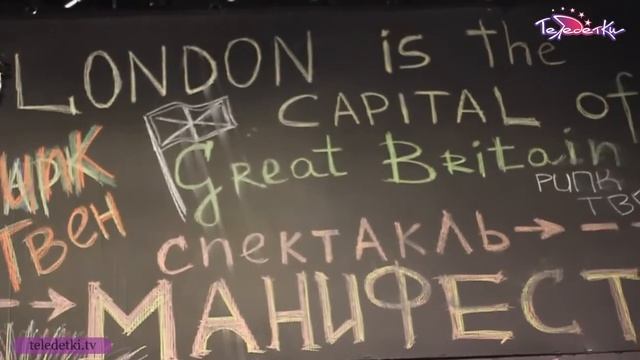 ТелеДетки
LONDON is the
CAPITAL of
Great Britain
ЦИРК
ТВЕН
РИПК
ТВО
спектакль
МАНИФЕСТ
teledetki.tv